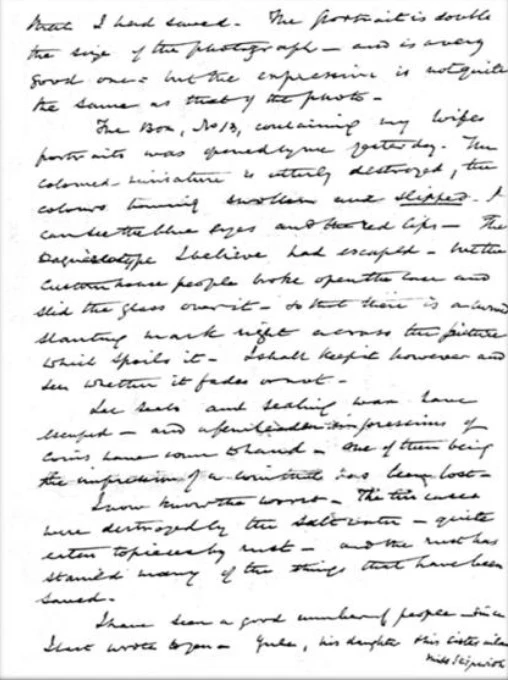 that I had saved - The portrait is double
the size of the photograph - and is a very
good one - but the expression is not quite
the same as that of the photo -
The Box, No 13, containing my wife's
portraits was opened by me yesterday. The
coloured miniature is utterly destroyed, the
colours having swollen and slipped. I
can see the blue eyes and the red lips - The
Daguerrotype I believe had escaped - but the
Custom house people broke open the case and
slid the glass over it - so that there is a
slanting mark right across the picture
which spoils it - I shall keep it however and
see whether it fades or not -
seals and sealing wax have
escaped - and a few impressions of
coins have come to hand - one of them being
the impression of a coin that has been lost -
I now know the worst - The tin cases
were destroyed by the salt water - quite
eaten to pieces by rust - and the rust has
stained many of the things that have been
saved -
I have seen a good number of people since
I last wrote to you - Yule, his daughter & his sister in law
Miss Skipwith